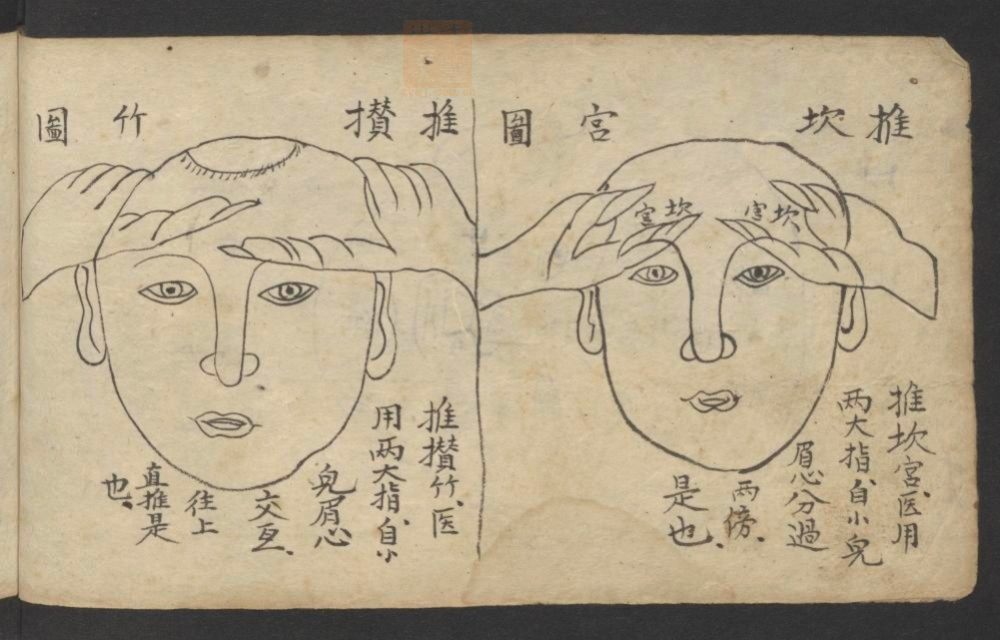 推坎宮圖
坎宮
坎宮
推坎宮、医用
两大指、自小皃
眉心分過
两傍、
是也、
推攅竹圖
推攅竹、医
用两大指、自小
皃眉心
交互、
往上
直推是
也、